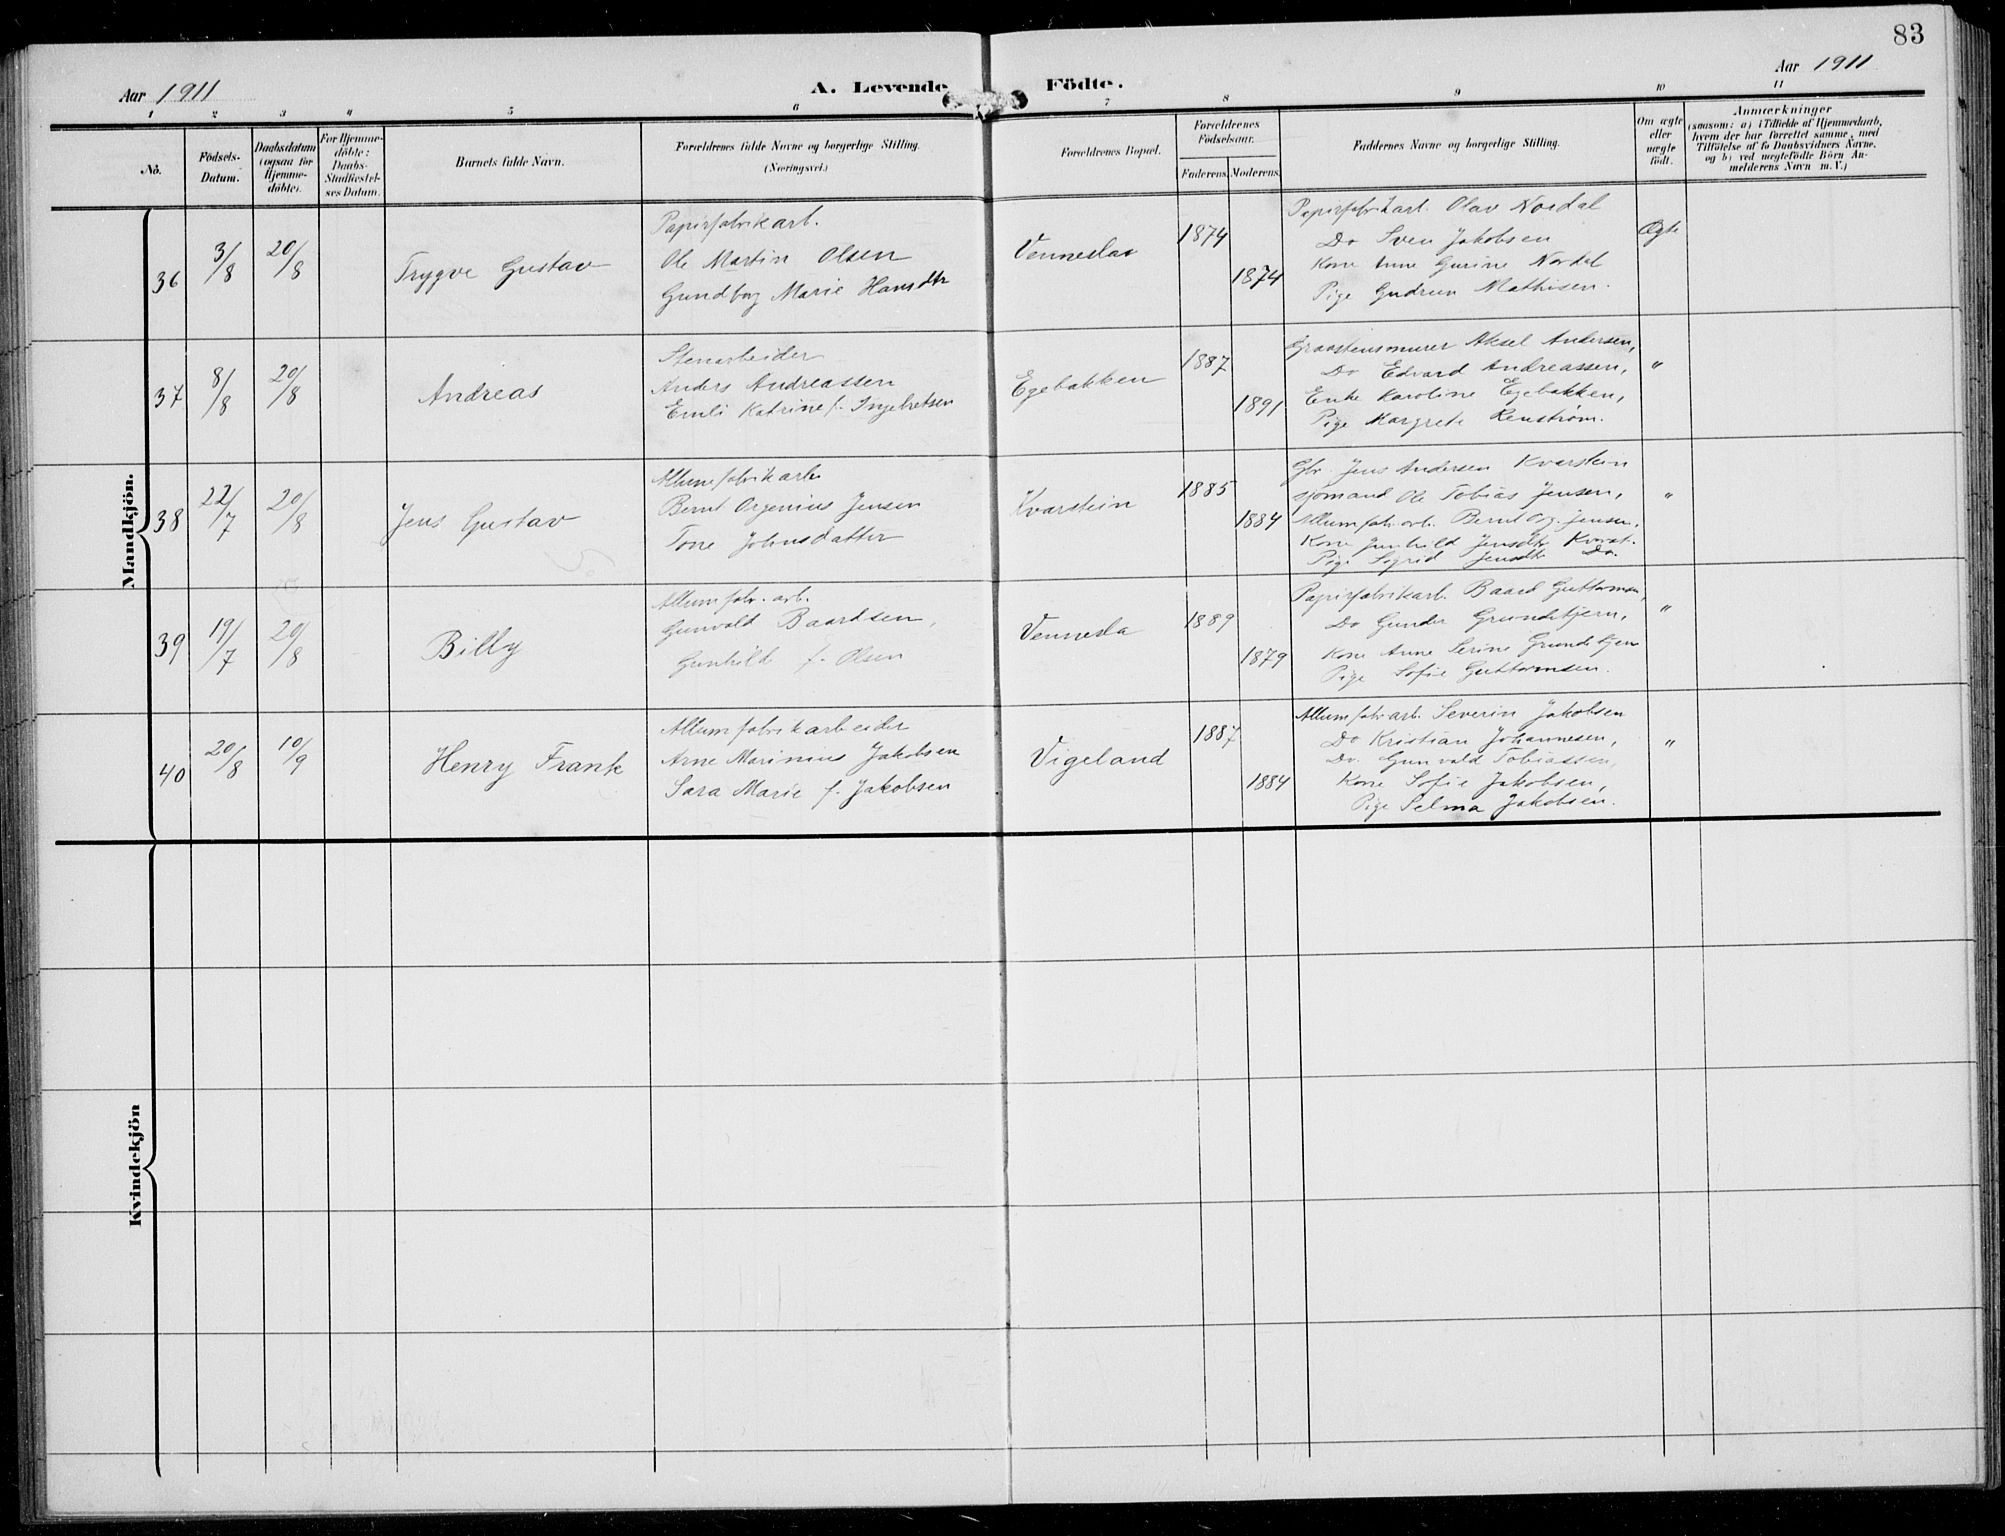 83
Aar 1911
A. Levende Födte.
Aar 1911
1 2 3 4 5 6 7 8 9 10 11
No.
Födsels-
Datum.
Daabsdatum
(ogsaa for
Hjemme-
döbte).
For Hjemme-
döbte:
Daabs-
Stadfæstel-
ses Datum.
Barnets fulde Navn.
Forældrenes fulde Navne og borgerlige Stilling.
(Næringsvei.)
Forældrenes Bopæl.
Forældrenes
Födselsaar.
Faderens. Moderens.
Faddernes Navne og borgerlige Stilling.
Om ægte
eller
uægte
födt.
Anmærkninger
(saasom: a) i Tilfælde af Hjemmedaab,
hvem der har forrettet samme, med
Tilföielse af to Daabsvidners Navne,
og b) ved uægtefödte Börn An-
melderens Navn m.V.)
Mandkjön.
36
3/8
20/8
Trygve Gustav
Papirfabrikarb.
Ole Martin Olsen
Gundborg Marie Hansdtr
Vennesla
1874
1874
Papirfabrikarb. Olav Nordal
Do Sven Jakobsen
Kone Anne Gurine Nordal
Pige Gudrun Mathisen.
Ægte
37
8/8
20/8
Andreas
Stenarbeider
Anders Andreassen
Emli Katrine f. Ingebretsen
Egebakken
1887
1891
Graastensmurer Aksel Andersen,
Do Edvard Andreassen,
Enke Karoline Egebakken,
Pige Margrete Renstrøm.
"
38
22/7
20/8
Jens Gustav
Allumfabrikarb.
Bernt Orgenius Jensen
Tone Johnsdatter
Kvarstein
1885
1884
Gbr. Jens Andersen Kvarstein
sjømand Ole Tobias Jensen,
Allumfabr.arb. Bernt Org. Jensen,
Kone Gunhild Jensdtr Kvarst.
Pige Sigrid Jensdtr Do.
"
39
19/7
20/8
Billy
Allumfabr. arb.
Gunvald Baardsen,
Gunhild f. Olsen
Vennesla
1889
1879
Papirfabrikarb. Baard Guttormsen,
Do Gunder Grundetjern,
Kone Anne Serine Grundetjern
Pige Sofie Guttormsen.
"
40
20/8
10/9
Henry Frank
Allumfabrikarbeider
Arne Marinius Jakobsen
Sara Marie f. Jakobsen
Vigeland
1887
1884
Allumfabr.arb. Severin Jakobsen
Do Kristian Johannesen,
Do. Gunvald Tobiassen,
Kone Sofie Jakobsen,
Pige Selma Jakobsen.
"
Kvindekjön